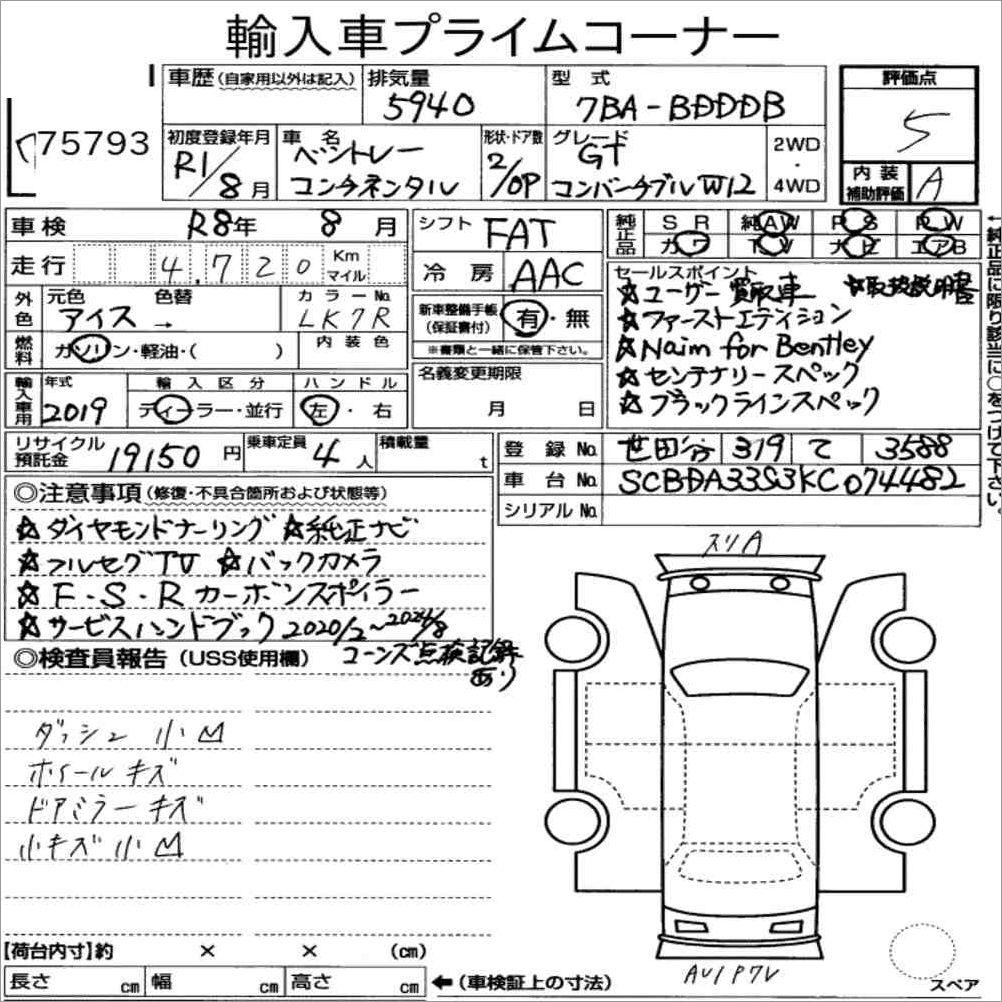 輸入車プライムコーナー
車歴 (自家用以外は記入) 排気量 型式 評価点
5940 7BA-BDDDB 5
75793
初度登録年月 車名 形状・ドア数 グレード 2WD
R1/8月 ベントレー 2/OP GT ・
コンチネンタル コンバーチブル W12 4WD
内装補助評価 A
車検 R8年 8月 シフト FAT 純正品 SR 純AW PS PW
カワ TV ナビ エアB
走行 4,720 Km マイル 冷房 AAC
←純正品に限り該当に○をつけて下さい。
外色 元色 色替 カラーNo. 新車整備手帳(保証書付) 有・無
アイス → LK7R ※書類と一緒に保管下さい。
燃料 ガソリン・軽油・( ) 内装色
セールスポイント
☆ユーザー買取車 ☆取扱説明書
☆ファーストエディション
☆Naim for Bentley
☆センテナリースペック
☆ブラックラインスペック
輸入車用 年式 輸入区分 ハンドル 名義変更期限
2019 ディーラー・並行 左・右 月 日
リサイクル預託金 19150円 乗車定員 4人 積載量 t
登録No. 世田谷 319 て 3588
車台No. SCBDA33S3KC074482
シリアルNo.
◎注意事項 (修復・不具合箇所および状態等)
☆ダイヤモンドナーリング ☆純正ナビ
☆フルセグTV ☆バックカメラ
☆F・S・Rカーボンスポイラー
☆サービスハンドブック 2020/2~2024/8
コーンズ点検記録あり
◎検査員報告 (USS使用欄)
ダッシュ 小凹
ホイールキズ
ドアミラーキズ
小キズ小凹
スリA
【荷台内寸】約 × × (cm)
長さ cm 幅 cm 高さ cm ←(車検証上の寸法)
スペア